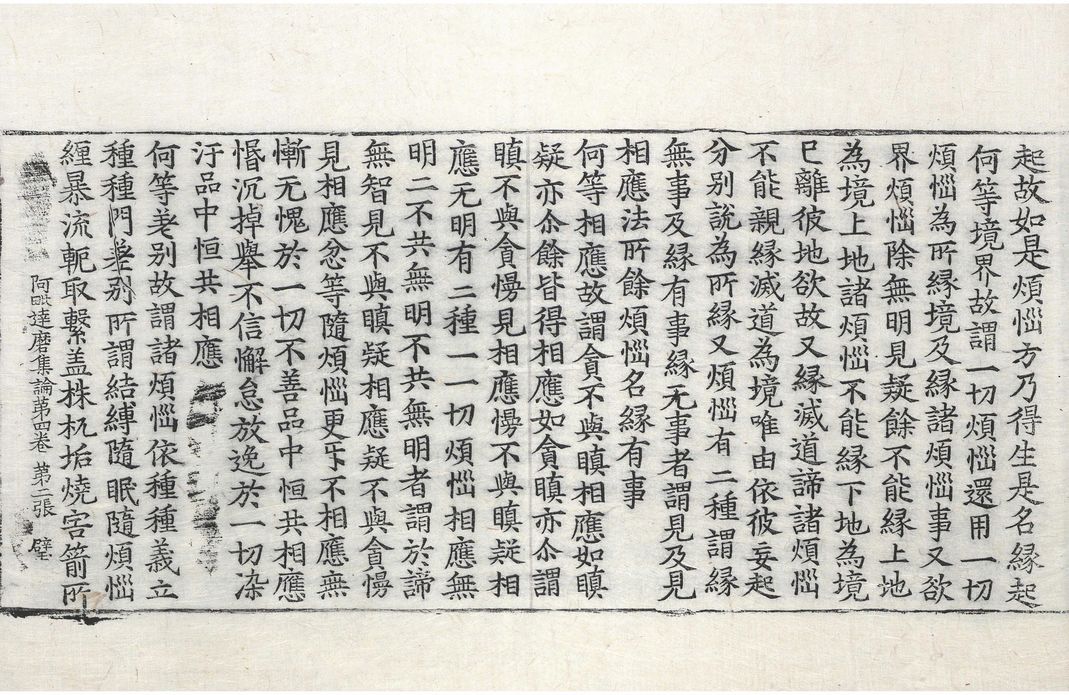 起故如是煩惱方乃得生是名緣起
何等境界故謂一切煩惱還用一切
煩惱為所緣境及緣諸煩惱事又欲
界煩惱除無明見疑餘不能緣上地
為境上地諸煩惱不能緣下地為境
已離彼地欲故又緣滅道諦諸煩惱
不能親緣滅道為境唯由依彼妄起
分別說為所緣又煩惱有二種謂緣
無事及緣有事緣无事者謂見及見
相應法所餘煩惱名緣有事
何等相應故謂貪不與瞋相應如瞋
疑亦尒餘皆得相應如貪瞋亦尒謂
瞋不與貪慢見相應慢不與瞋疑相
應无明有二種一一切煩惱相應無
明二不共無明不共無明者謂於諦
無智見不與瞋疑相應疑不與貪慢
見相應忿等隨煩惱更㸦不相應無
慚无愧於一切不善品中恒共相應
惛沉掉舉不信懈怠放逸於一切染
汙品中恒共相應
何等差別故謂諸煩惱依種種義立
種種門差別所謂結縛隨眠隨煩惱
纏暴流軛取繫盖株杌垢燒害箭所
阿毗達磨集論第四卷 第二張 壁